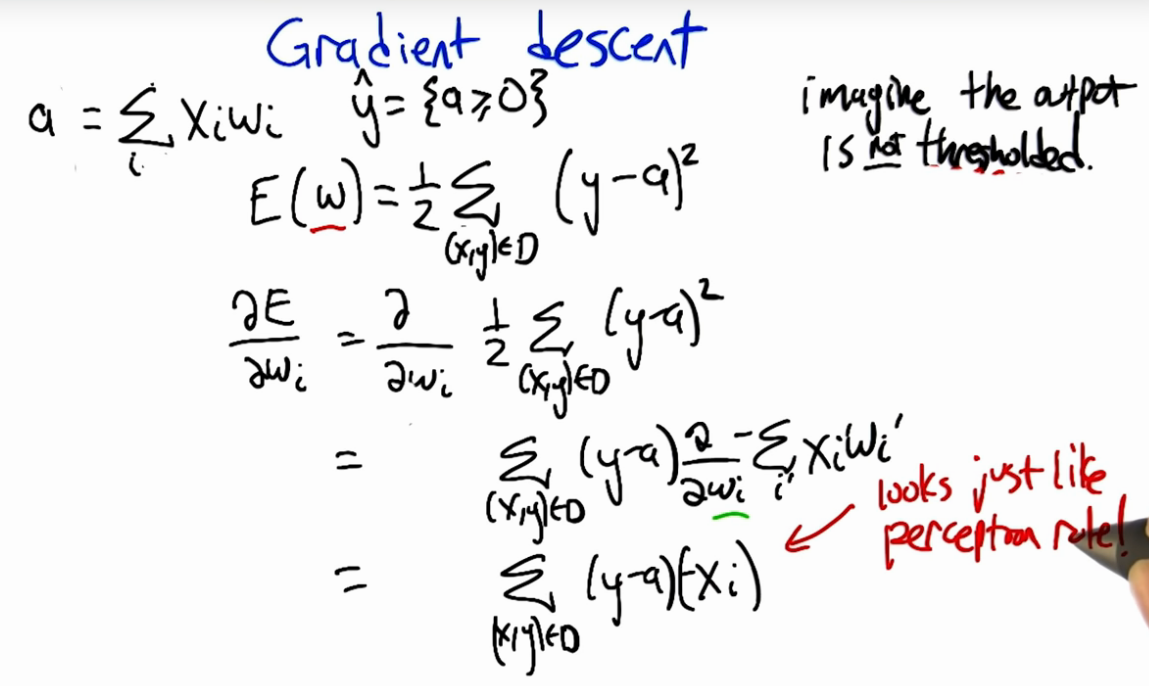 Gradient descent
a = Σ_i x_i w_i    ŷ = {a ≥ 0}
imagine the output
is not thresholded.
E(w) = 1/2 Σ_(x,y)∈D (y-a)²
∂E/∂w_i = ∂/∂w_i 1/2 Σ_(x,y)∈D (y-a)²
= Σ_(x,y)∈D (y-a) ∂/∂w_i - Σ_i' x_i w_i'
looks just like
perceptron rule!
= Σ_(x,y)∈D (y-a)(-x_i)